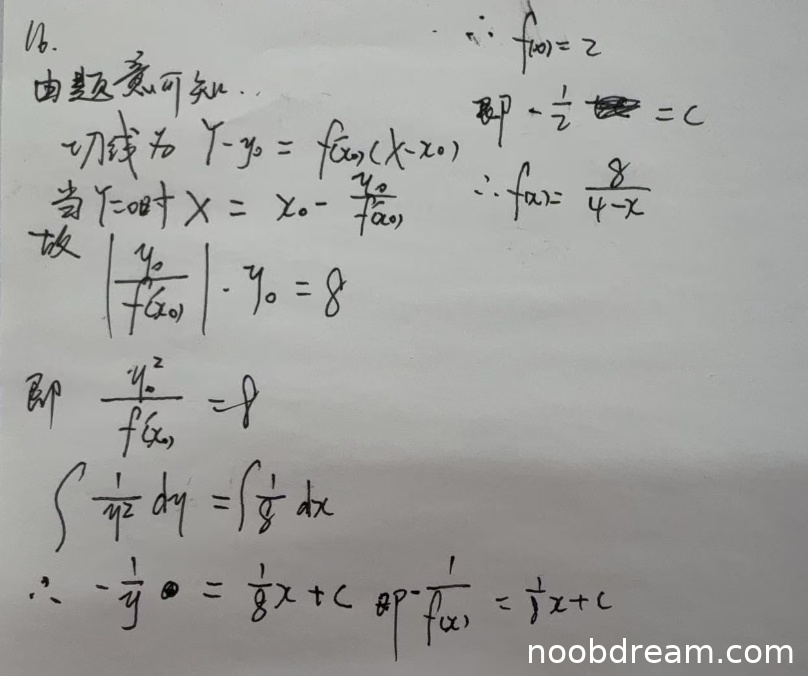 16.
由题意可知..
切线为 Y-y₀ = f'(x₀)(X-x₀)
当Y=0时 X = x₀ - y₀/f'(x₀)
故
|y₀/f'(x₀)| · y₀ = 8
即 y₀²/f'(x₀) = 8
∫ 1/y² dy = ∫ 1/8 dx
∴ -1/y = 1/8 x + c 即 -1/f(x) = 1/8 x + c
∵ f(0) = 2
即 -1/2 = c
∴ f(x) = 8/(4-x)
noobdream.com